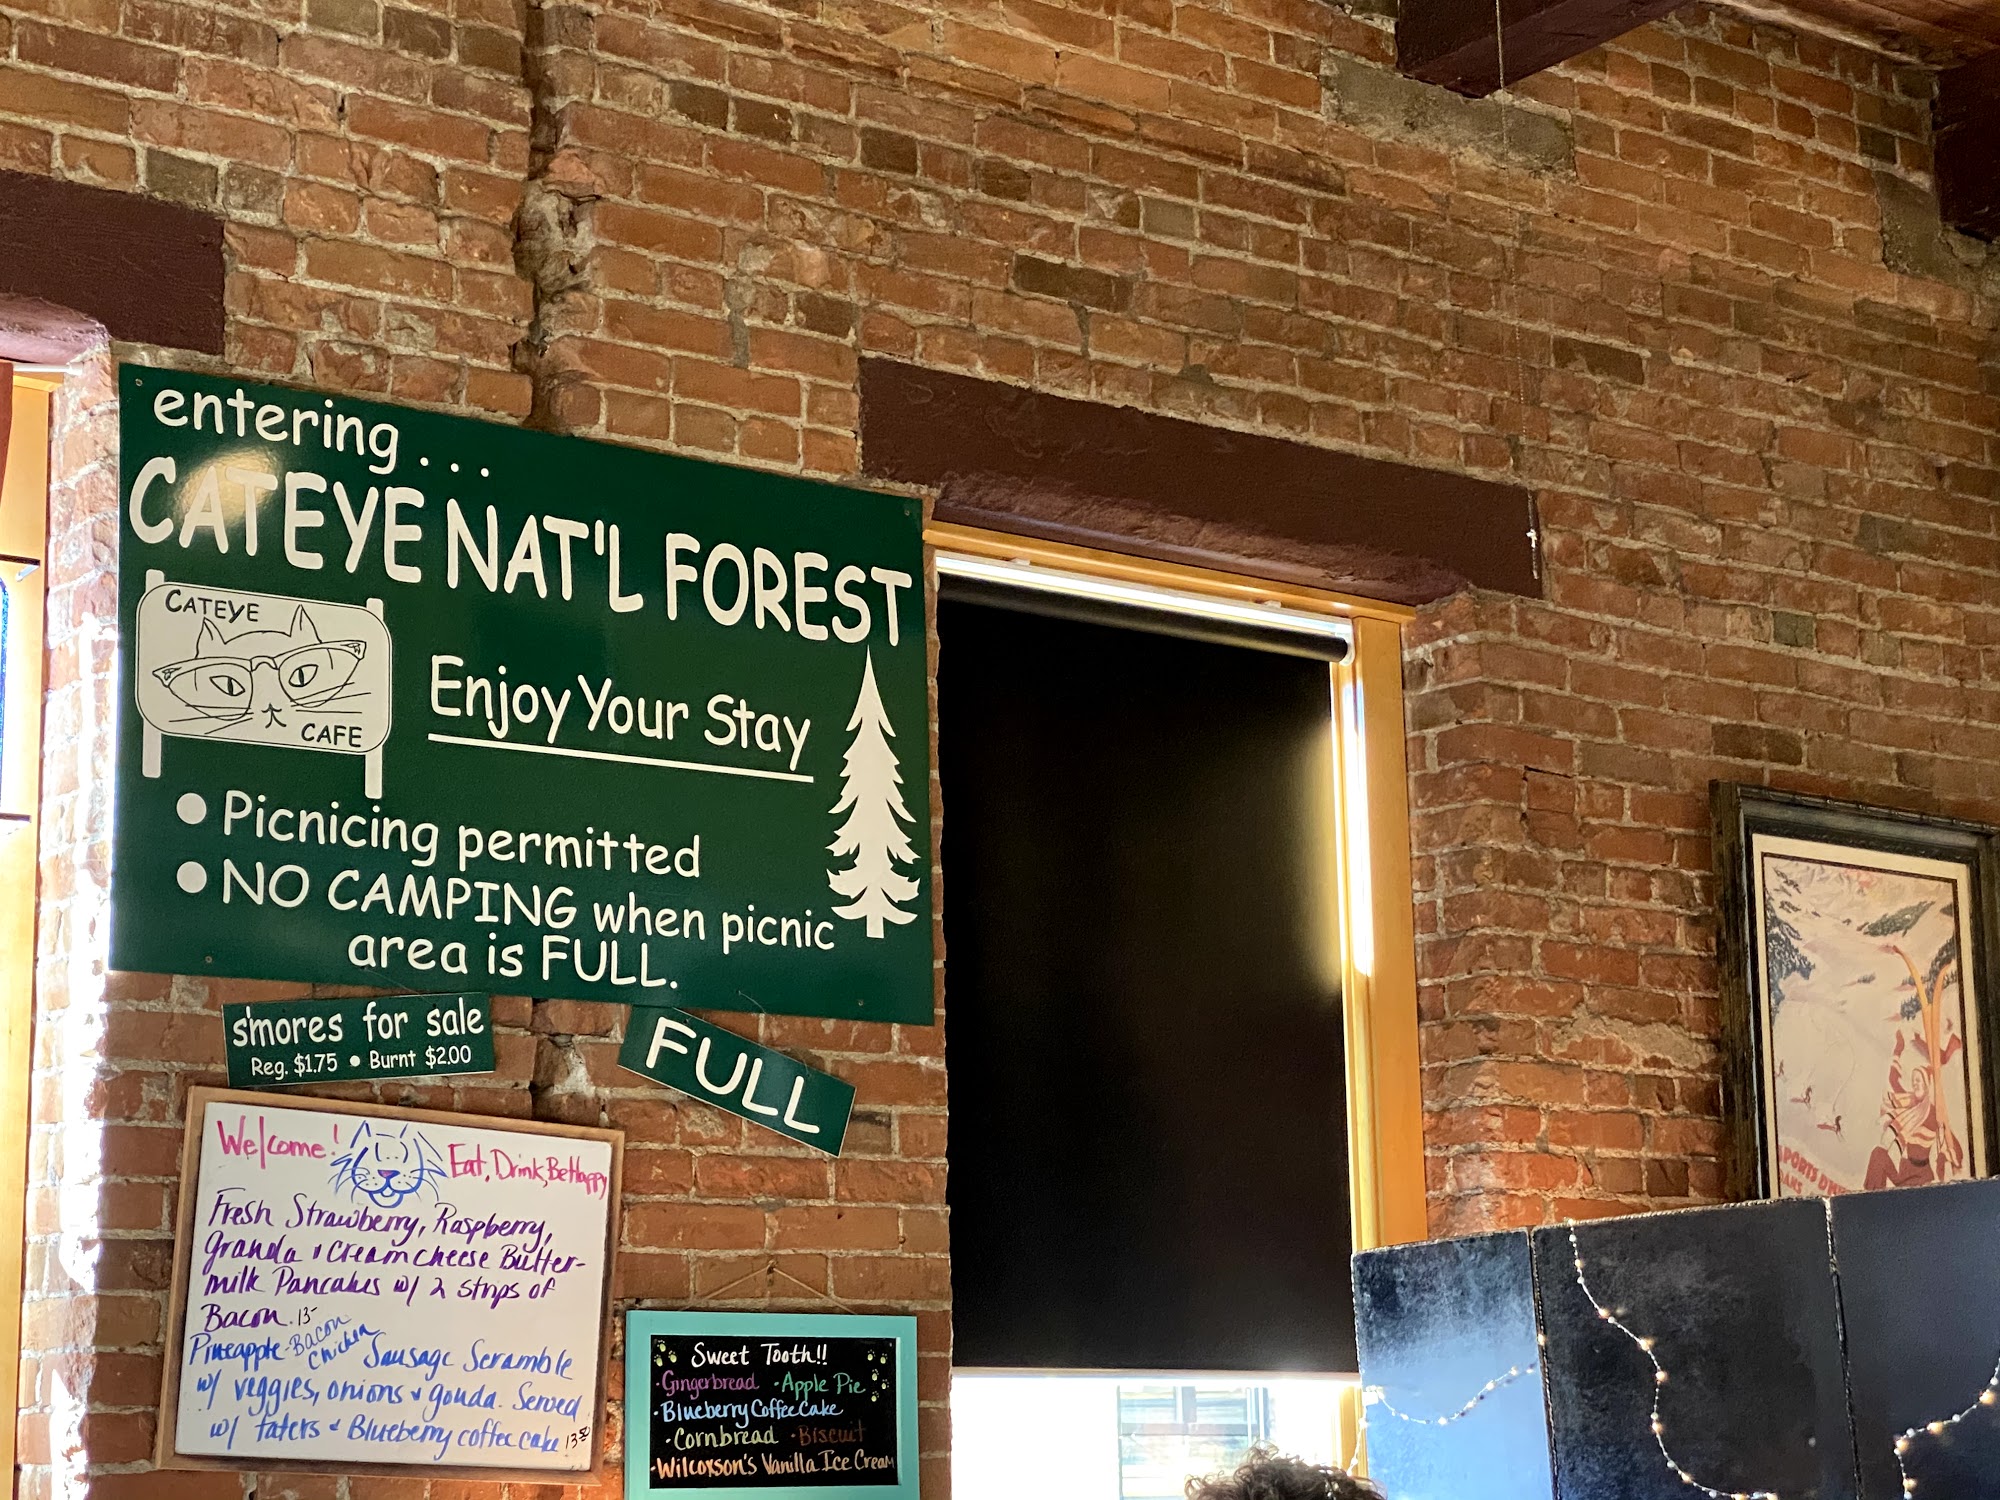 entering...
CATEYE NAT'L FOREST
CATEYE
CAFE
Enjoy Your Stay
• Picnicing permitted
• NO CAMPING when picnic
area is FULL.
s'mores for sale
Reg. $1.75 • Burnt $2.00
FULL
Welcome! Eat, Drink, Be Happy
Fresh Strawberry, Raspberry,
Granola & cream cheese Butter-
milk Pancakes w/ 2 strips of
Bacon. 13-
Pineapple-Bacon
Chicken Sausage Scramble
w/ veggies, onions & gouda. Served
w/ taters & Blueberry coffee cake 13.50
Sweet Tooth!!
• Gingerbread • Apple Pie
• Blueberry Coffee Cake
• Cornbread • Biscuit
• Wilcoxson's Vanilla Ice Cream